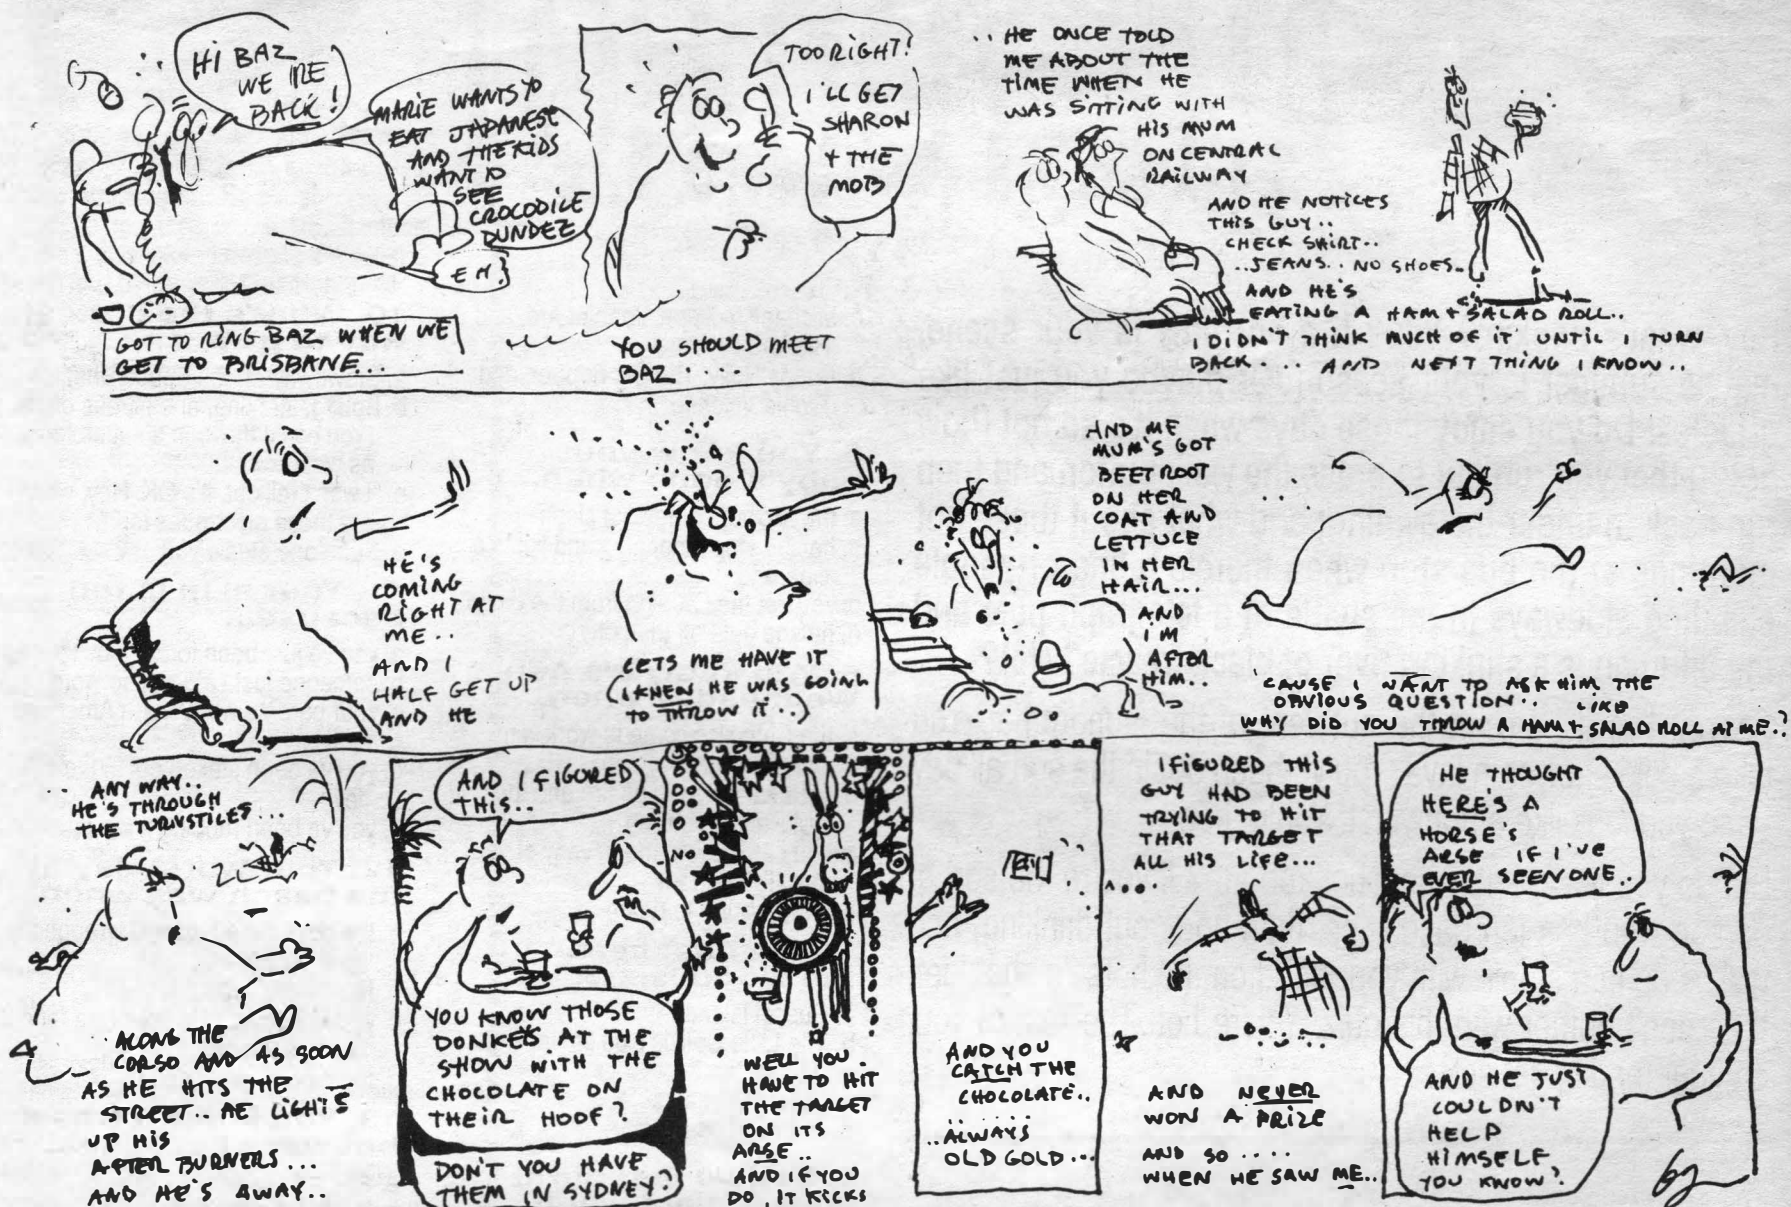 HI BAZ
WE'RE
BACK!
MARIE WANTS TO
EAT JAPANESE
AND THE KIDS
WANT TO
SEE
CROCODILE
DUNDEE
EH?
GOT TO RING BAZ WHEN WE
GET TO BRISBANE...
TOO RIGHT!
I'LL GET
SHARON
+ THE
MOB
YOU SHOULD MEET
BAZ ....
.. HE ONCE TOLD
ME ABOUT THE
TIME WHEN HE
WAS SITTING WITH
HIS MUM
ON CENTRAL
RAILWAY
AND HE NOTICES
THIS GUY..
CHECK SHIRT..
..JEANS.. NO SHOES..
AND HE'S
EATING A HAM + SALAD ROLL..
I DIDN'T THINK MUCH OF IT UNTIL I TURN
BACK.... AND NEXT THING I KNOW..
HE'S
COMING
RIGHT AT
ME..
AND I
HALF GET UP
AND HE
LETS ME HAVE IT
(I KNEW HE WAS GOING
TO THROW IT..)
AND ME
MUM'S GOT
BEETROOT
ON HER
COAT AND
LETTUCE
IN HER
HAIR...
AND
I'M
AFTER
HIM..
'CAUSE I WANT TO ASK HIM THE
OBVIOUS QUESTION.. LIKE
WHY DID YOU THROW A HAM + SALAD ROLL AT ME..?
.. ANY WAY..
HE'S THROUGH
THE TURNSTILES...
ALONG THE
CORSO AND AS SOON
AS HE HITS THE
STREET.. HE LIGHTS
UP HIS
AFTER BURNERS...
AND HE'S AWAY..
AND I FIGURED
THIS..
YOU KNOW THOSE
DONKEYS AT THE
SHOW WITH THE
CHOCOLATE ON
THEIR HOOF?
DON'T YOU HAVE
THEM IN SYDNEY?
NO
WELL YOU
HAVE TO HIT
THE TARGET
ON ITS
ARSE..
AND IF YOU
DO, IT KICKS
AND YOU
CATCH THE
CHOCOLATE..
......
..ALWAYS
OLD GOLD...
I FIGURED THIS
GUY HAD BEEN
TRYING TO HIT
THAT TARGET
ALL HIS LIFE...
AND NEVER
WON A PRIZE
AND SO ....
WHEN HE SAW ME..
HE THOUGHT
HERE'S A
HORSE'S
ARSE IF I'VE
EVER SEEN ONE..
AND HE JUST
COULDN'T
HELP
HIMSELF
YOU KNOW?